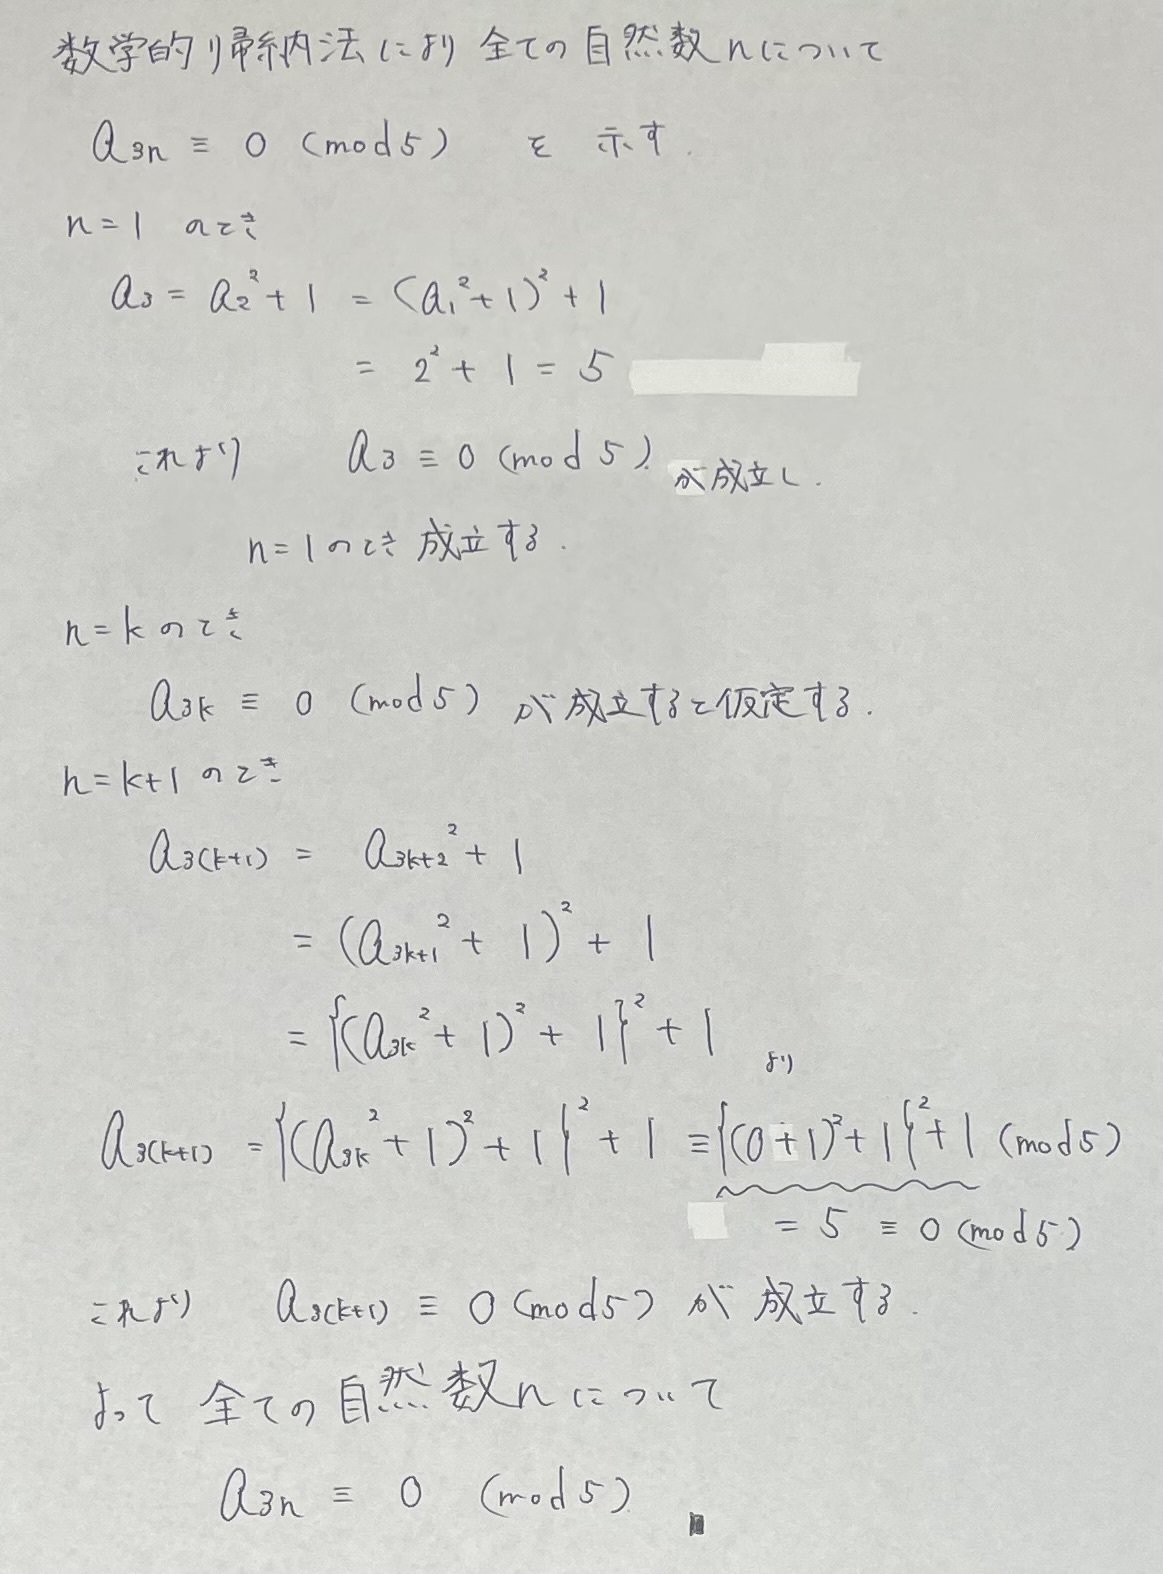 数学的帰納法により 全ての自然数nについて
a₃ₙ ≡ 0 (mod5) を 示す.
n=1 のとき
a₃ = a₂² + 1 = (a₁² + 1)² + 1
= 2² + 1 = 5
これより a₃ ≡ 0 (mod 5) が成立し.
n=1のとき 成立する.
n=kのとき
a₃ₖ ≡ 0 (mod5) が成立すると仮定する.
n=k+1 のとき
a₃₍ₖ₊₁₎ = a₃ₖ₊₂² + 1
= (a₃ₖ₊₁² + 1)² + 1
= {(a₃ₖ² + 1)² + 1}² + 1 より
a₃₍ₖ₊₁₎ = {(a₃ₖ² + 1)² + 1}² + 1 ≡ {(0+1)² + 1}² + 1 (mod5)
= 5 ≡ 0 (mod5)
これより a₃₍ₖ₊₁₎ ≡ 0 (mod5) が 成立する.
よって 全ての自然数nについて
a₃ₙ ≡ 0 (mod5)